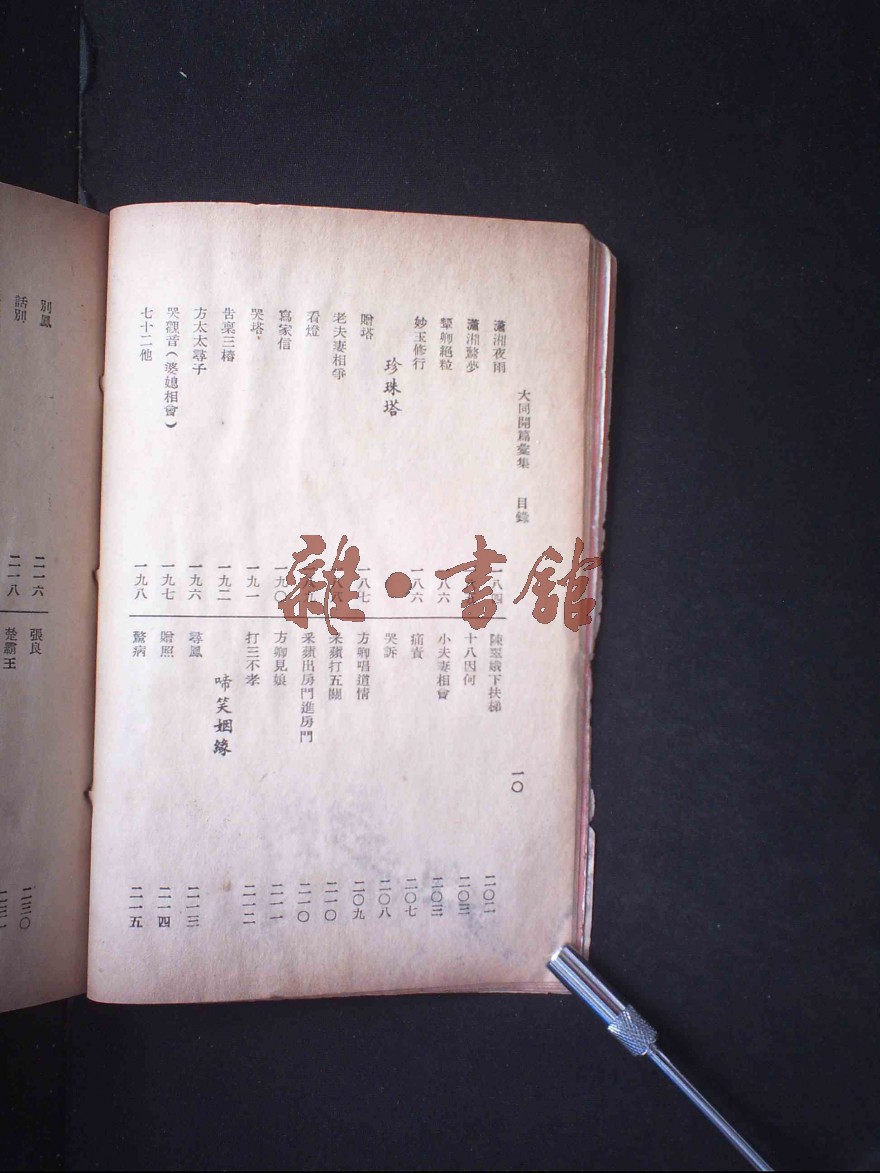 大同開篇彙集 目錄 一〇
瀟湘夜雨 一八四
瀟湘驚夢
顰卿絕粒 一八六
妙玉修行 一八六
珍珠塔
贈塔 一八七
老夫妻相爭
看燈
寫家信 一九〇
哭塔 一九一
告稟三樁 一九二
方太太尋子 一九六
哭觀音(婆媳相會) 一九七
七十二他 一九八
陳翠娥下扶梯 二〇二
十八因何 二〇三
小夫妻相會 二〇三
痛責 二〇七
哭訴 二〇八
方卿唱道情 二〇九
采蘋打五關 二一〇
采蘋出房門進房門 二一〇
方卿見娘 二一一
打三不孝 二一二
啼笑姻緣
尋鳳 二一三
贈照 二一四
驚病 二一五
別鳳 二一六
話別 二一八
張良 二三〇
楚霸王
雜·書館